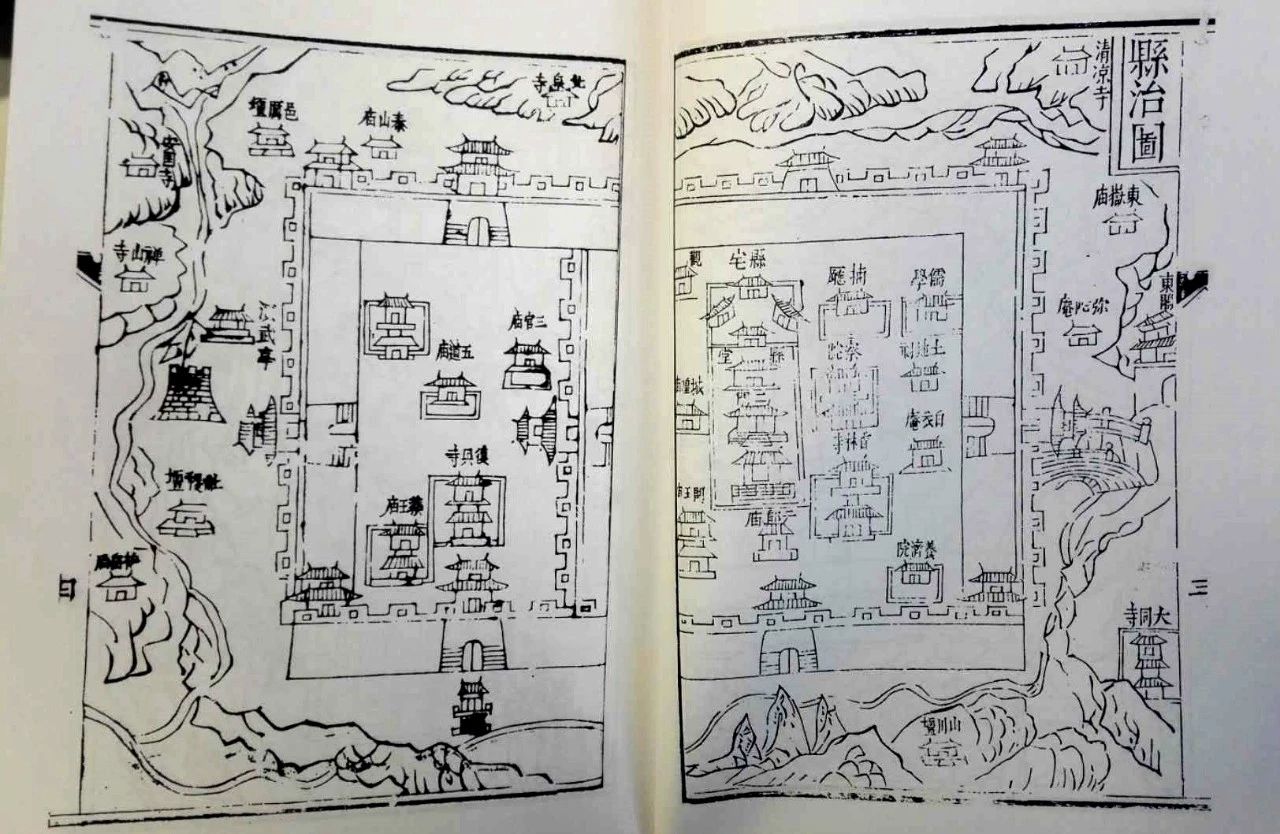 縣治圖
清涼寺
東嶽廟
東關
弥陀庵
大洞寺
儒學
土地祠
白衣庵
養濟院
捕廳
察院
香林寺
縣宅
縣堂
馬廟
山川壇
觀
城隍廟
關王廟
三
龍泉寺
泰山廟
邑厲壇
安國寺
禪山寺
三官廟
五道廟
復興寺
藥王廟
演武亭
社稷壇
四